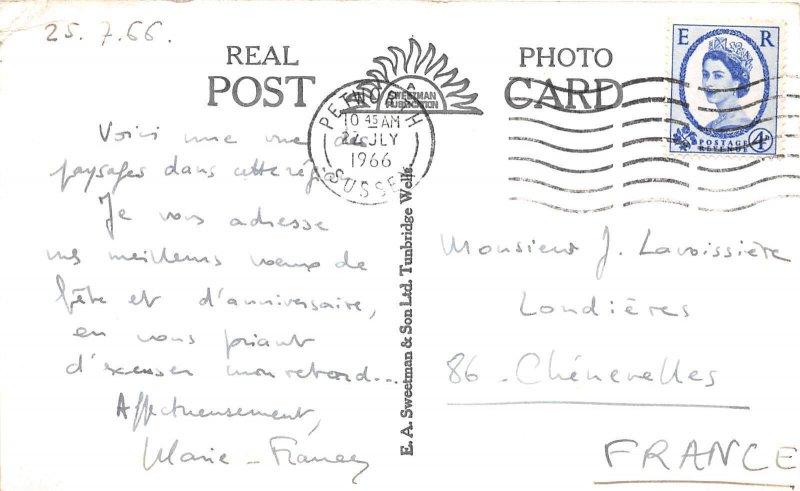 25.7.66.
REAL PHOTO
POST CARD
A
SWEETMAN
PUBLICATION
PETWORTH
10 45 AM
27 JLY
1966
SUSSEX
E R
POSTAGE
REVENUE
4D
Voici une vue des
paysages dans cette
Je vous adresse
mes meilleurs vœux de
fête et d'anniversaire,
en vous priant
d'excuser mon retard...
Affectueusement,
Marie-
E. A. Sweetman & Son Ltd. Tunbridge Wells.
Monsieur J. Lavoissière
Londières
86 - Chénevelles
FRANCE